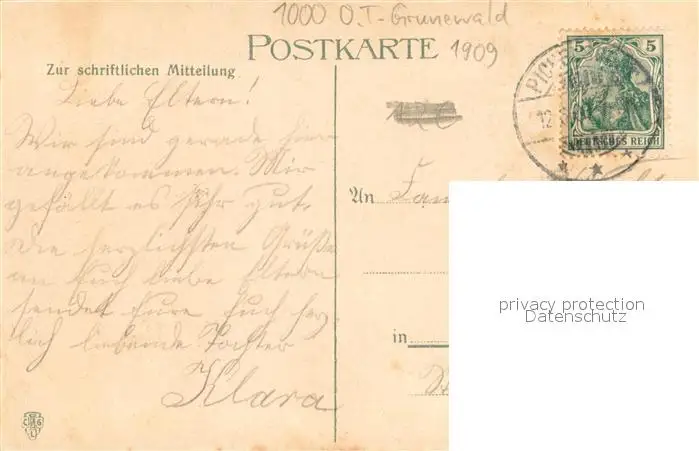 1000 O.T-Grunewald
POSTKARTE 1909
Zur schriftlichen Mitteilung
Liebe Eltern!
Wir sind gerade hier
angekommen. Mir
gefällt es sehr gut.
Die herzlichsten Grüße
an Euch liebe Eltern
sendet Eure Euch herz
lich liebende Tochter
Klara
5 5
DEUTSCHES REICH
PICH
12
An Fam
in
privacy protection
Datenschutz